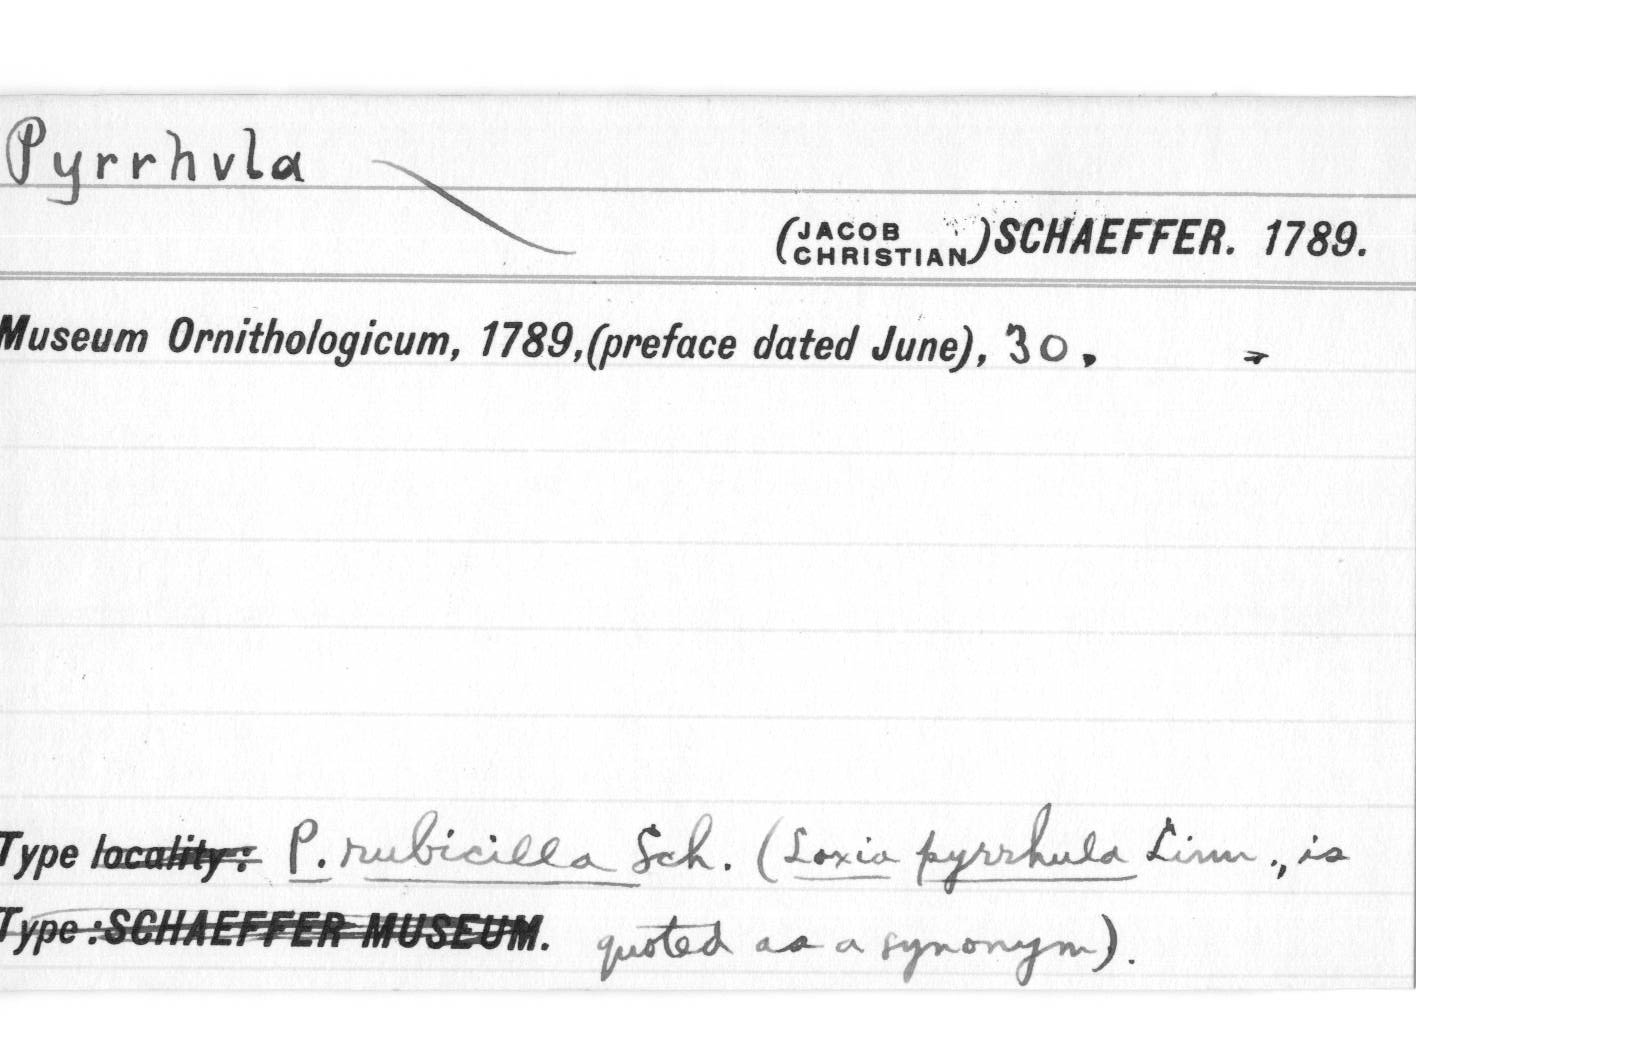 Pyrrhvla
(JACOB CHRISTIAN) SCHAEFFER. 1789.
Museum Ornithologicum, 1789, (preface dated June), 30.
Type locality: P. rubicilla Sch. (Loxia pyrrhula Linn., is
Type: SCHAEFFER MUSEUM. quoted as a synonym).